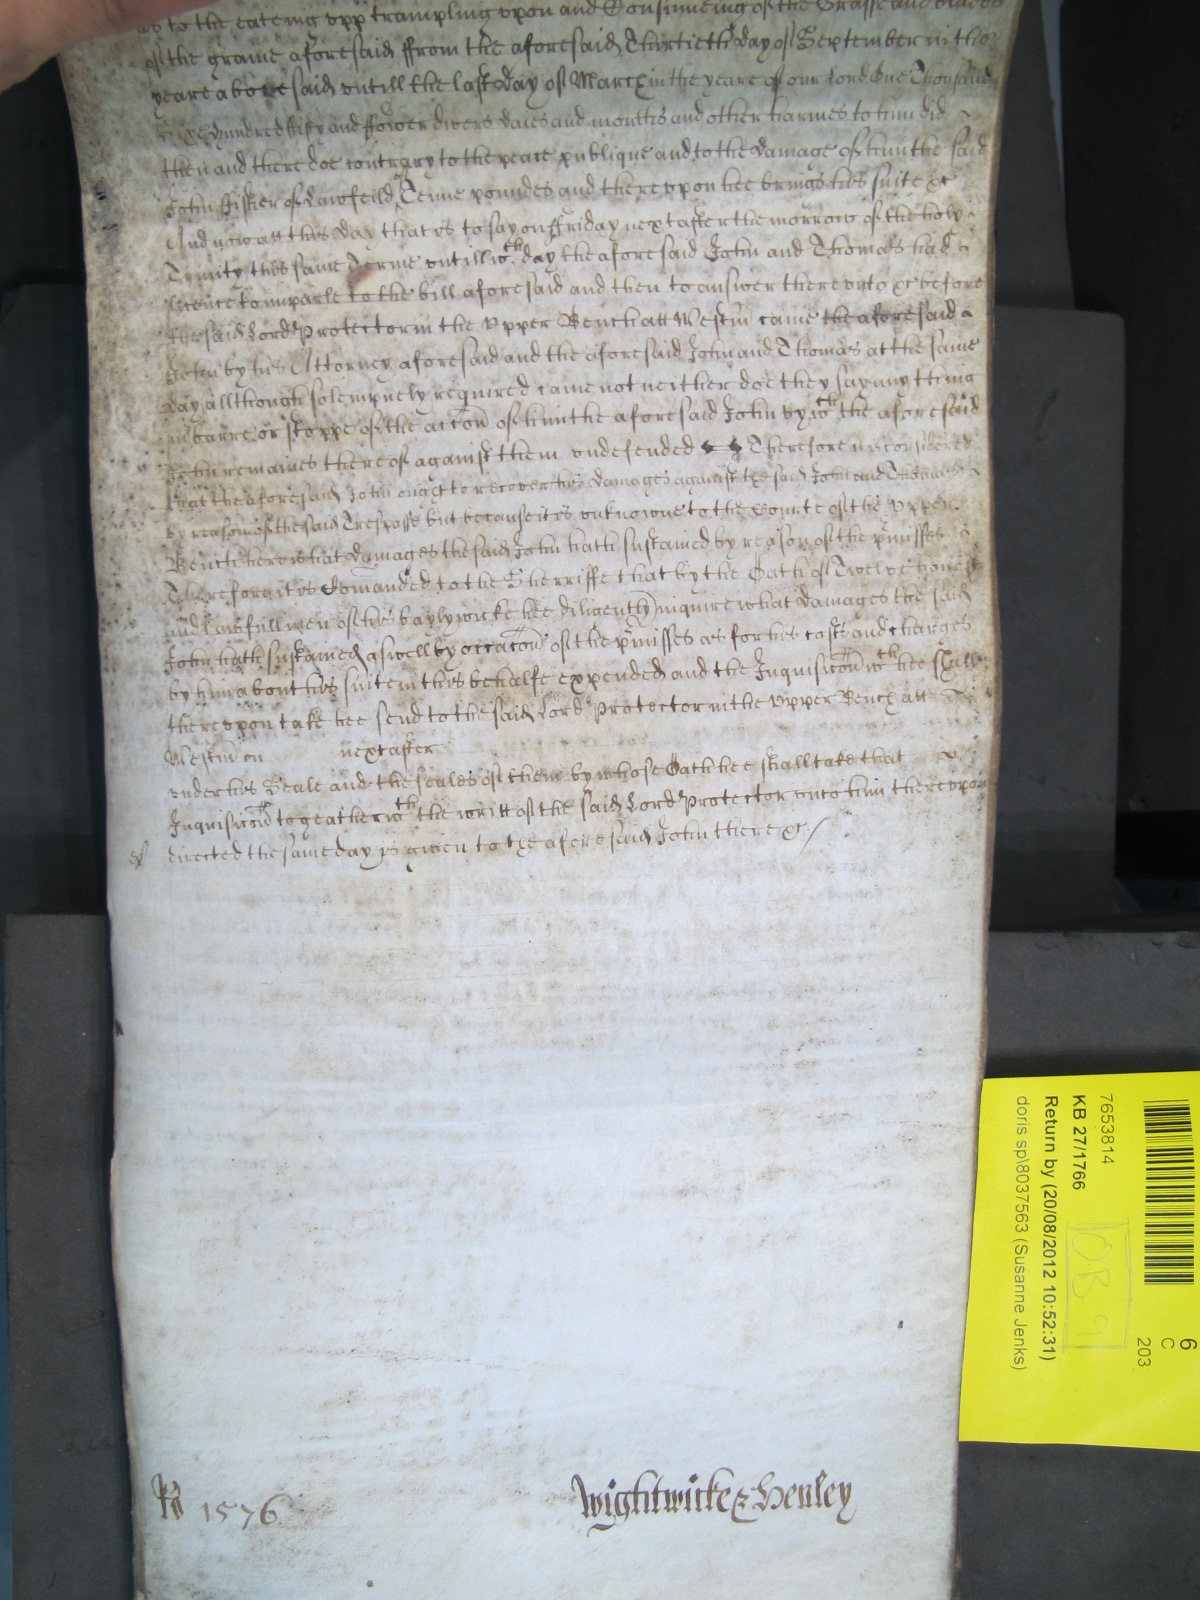 as to the eateing upp trampling upon and Consumeing of the Grasse and blades
of the graine aforesaid ffrom the aforesaid Thirtieth day of September in the
yeare above said untill the last day of March in the yeare of our Lord One Thousand
sixe hundred fifty and ffower divers daies and monthes and other harmes to him did
then and there doe contrary to the peace publique and to the damage of him the said
John ffisher of Lawfeild Tenne poundes and thereupon hee brings his suite &c
And now att this day that is to say on ffriday next after the morrow of the holy
Trinity this same terme untill wch day the aforesaid John and Thomas had
licence to imparle to the bill aforesaid and then to answer thereunto &c before
the said Lord Protector in the Upper Bench att Westm came the aforesaid
John by his Attorney aforesaid and the aforesaid John and Thomas at the same
day allthough solempnely required came not neither doe they say any thing
in barre or stoppe of the accon of him the aforesaid John by wch the aforesaid
John remaines thereof against them undefended Therefore it is considered
that the aforesaid John ought to recover his damages against the said John and Thomas
by reason of the said Trespasse but because it is unknowne to the Courte of the Upper
Bench here what damages the said John hath sustained by reason of the pmisses
Therefore it is Comanded to the Sherriffe that by the Oath of Twelve honest
and lawfull men of his baylywicke hee diligently inquire what damages the said
John hath sustained aswell by occacon of the pmisses as for his costs and charges
by him about his suite in this behalfe expended and the Inquisicon wch hee shall
thereupon take hee send to the said Lord Protector in the Upper Bench att
Westm on next after
under his Seale and the seales of them by whose Oath hee shall take that
Inquisicon togeather wth the writt of the said Lord Protector unto him thereupon
directed the same day is given to the aforesaid John there &c/
Ro 1576
Wightwicke & Henley
7653814
KB 27/1766
Return by (20/08/2012 10:52:31)
doris sp\8037563 (Susanne Jenks)
O.B. 9
6
C
203